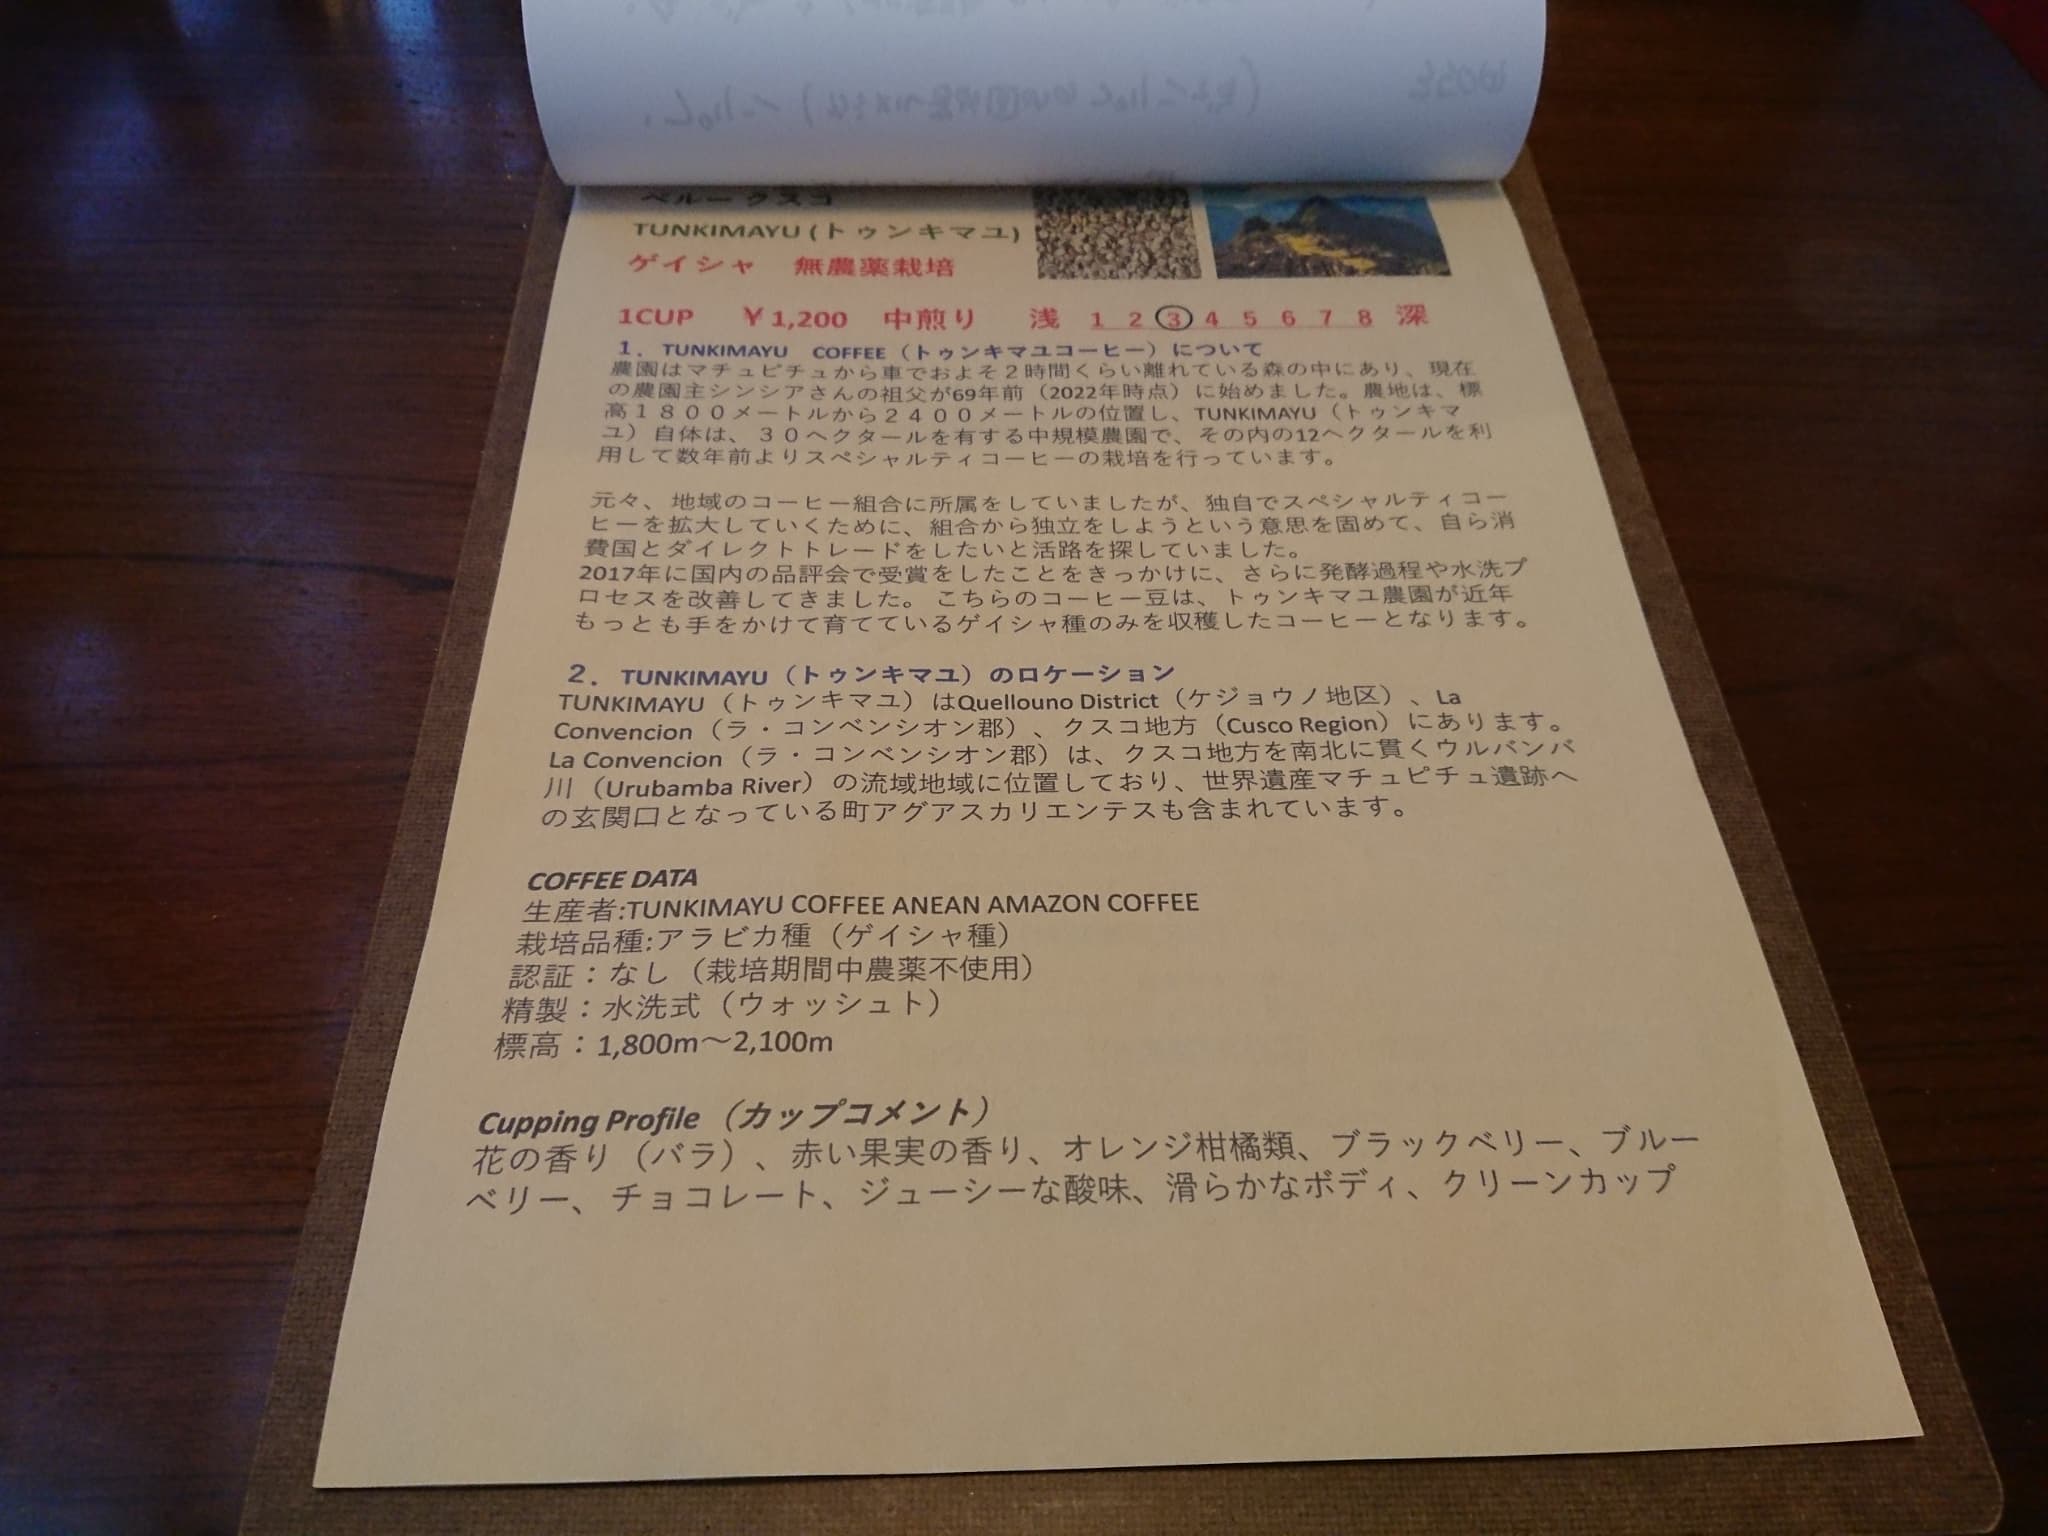 ペルー クスコ
TUNKIMAYU (トゥンキマユ)
ゲイシャ　無農薬栽培
1CUP　￥1,200　中煎り　浅　1 2 3 4 5 6 7 8　深
１．TUNKIMAYU　COFFEE（トゥンキマユコーヒー）について
農園はマチュピチュから車でおよそ２時間くらい離れている森の中にあり、現在
の農園主シンシアさんの祖父が69年前（2022年時点）に始めました。農地は、標
高１８００メートルから２４００メートルの位置し、TUNKIMAYU（トゥンキマ
ユ）自体は、３０ヘクタールを有する中規模農園で、その内の12ヘクタールを利
用して数年前よりスペシャルティコーヒーの栽培を行っています。
元々、地域のコーヒー組合に所属をしていましたが、独自でスペシャルティコー
ヒーを拡大していくために、組合から独立をしようという意思を固めて、自ら消
費国とダイレクトトレードをしたいと活路を探していました。
2017年に国内の品評会で受賞をしたことをきっかけに、さらに発酵過程や水洗プ
ロセスを改善してきました。こちらのコーヒー豆は、トゥンキマユ農園が近年
もっとも手をかけて育てているゲイシャ種のみを収穫したコーヒーとなります。
２．TUNKIMAYU（トゥンキマユ）のロケーション
TUNKIMAYU（トゥンキマユ）はQuellouno District（ケジョウノ地区）、La
Convencion（ラ・コンベンシオン郡）、クスコ地方（Cusco Region）にあります。
La Convencion（ラ・コンベンシオン郡）は、クスコ地方を南北に貫くウルバンバ
川（Urubamba River）の流域地域に位置しており、世界遺産マチュピチュ遺跡へ
の玄関口となっている町アグアスカリエンテスも含まれています。
COFFEE DATA
生産者:TUNKIMAYU COFFEE ANEAN AMAZON COFFEE
栽培品種:アラビカ種（ゲイシャ種）
認証：なし（栽培期間中農薬不使用）
精製：水洗式（ウォッシュト）
標高：1,800m～2,100m
Cupping Profile（カップコメント）
花の香り（バラ）、赤い果実の香り、オレンジ柑橘類、ブラックベリー、ブルー
ベリー、チョコレート、ジューシーな酸味、滑らかなボディ、クリーンカップ